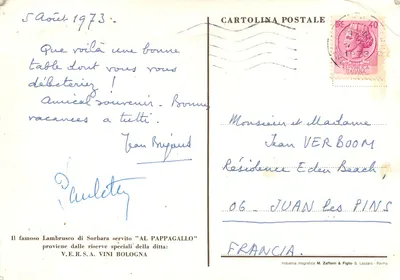 5 Août 1973.
Que voilà une bonne
table dont vous vous
délecteriez !
Amical souvenir. Bonnes
vacances a tutti.
Jean
Paulette
Il famoso Lambrusco di Sorbara servito "AL PAPPAGALLO"
proviene dalle riserve speciali della ditta:
V.E.R.S.A. VINI BOLOGNA
CARTOLINA POSTALE
40
Monsieur et Madame
Jean VERBOOM
Résidence Eden Beach
06 - JUAN les PINS
FRANCIA.
Industria magnetica M. Zaffanni & Figlio S. Lazzaro - Roma